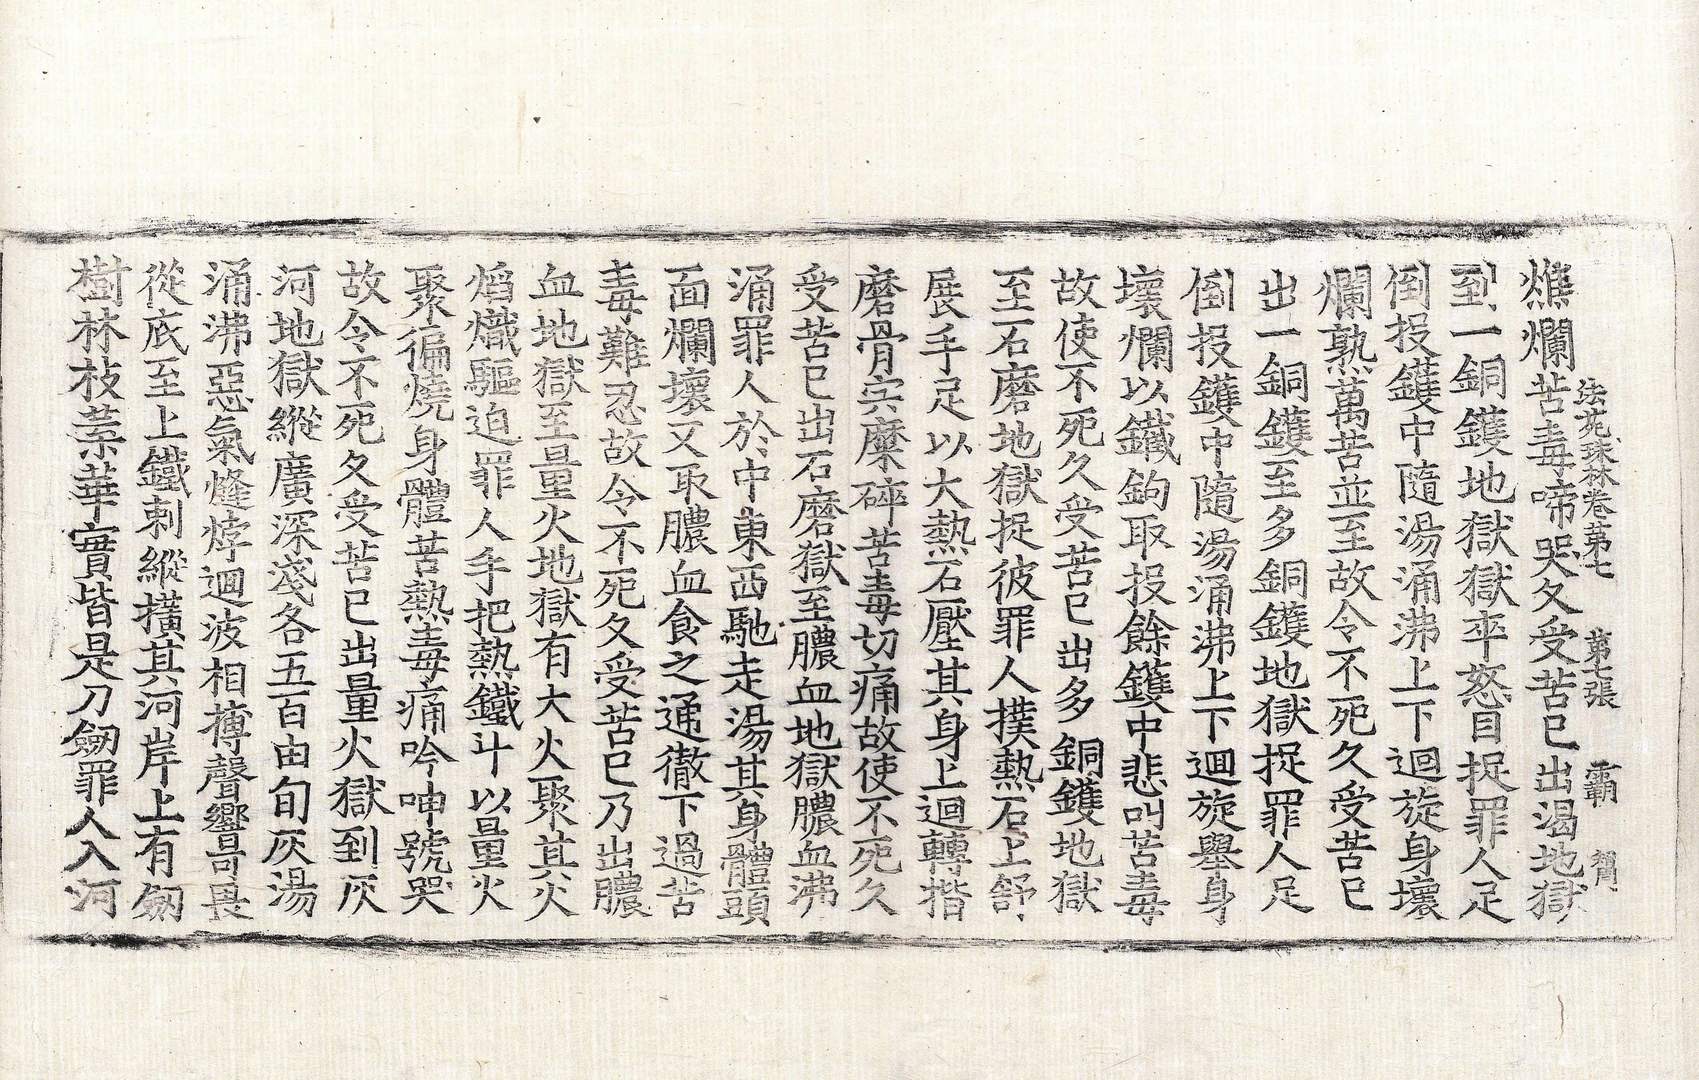 法苑珠林卷第七 第七張 覇
燋爛苦毒啼哭久受苦已出渴地獄
到一銅鑊地獄獄卒怒目捉罪人足
倒投鑊中隨湯涌沸上下迴旋身壞
爛熟萬苦並至故令不死久受苦已
出一銅鑊至多銅鑊地獄捉罪人足
倒投鑊中隨湯涌沸上下迴旋舉身
壞爛以鐵鉤取投餘鑊中悲叫苦毒
故使不死久受苦已出多銅鑊地獄
至石磨地獄捉彼罪人撲熱石上舒
展手足以大熱石壓其身上迴轉揩
磨骨宍糜碎苦毒切痛故使不死久
受苦已出石磨獄至膿血地獄膿血沸
涌罪人於中東西馳走湯其身體頭
面爛壞又取膿血食之通徹下過苦
毒難忍故令不死久受苦已乃出膿
血地獄至量火地獄有大火聚其火
焰熾驅迫罪人手把熱鐵斗以量火
聚徧燒身體苦熱毒痛吟呻號哭
故令不死久受苦已出量火獄到灰
河地獄縱廣深淺各五百由旬灰湯
涌沸惡氣熢㶿迴波相搏聲響可畏
從底至上鐵刺縱擴其河岸上有劒
樹林枝葉華實皆是刀劒罪人入河